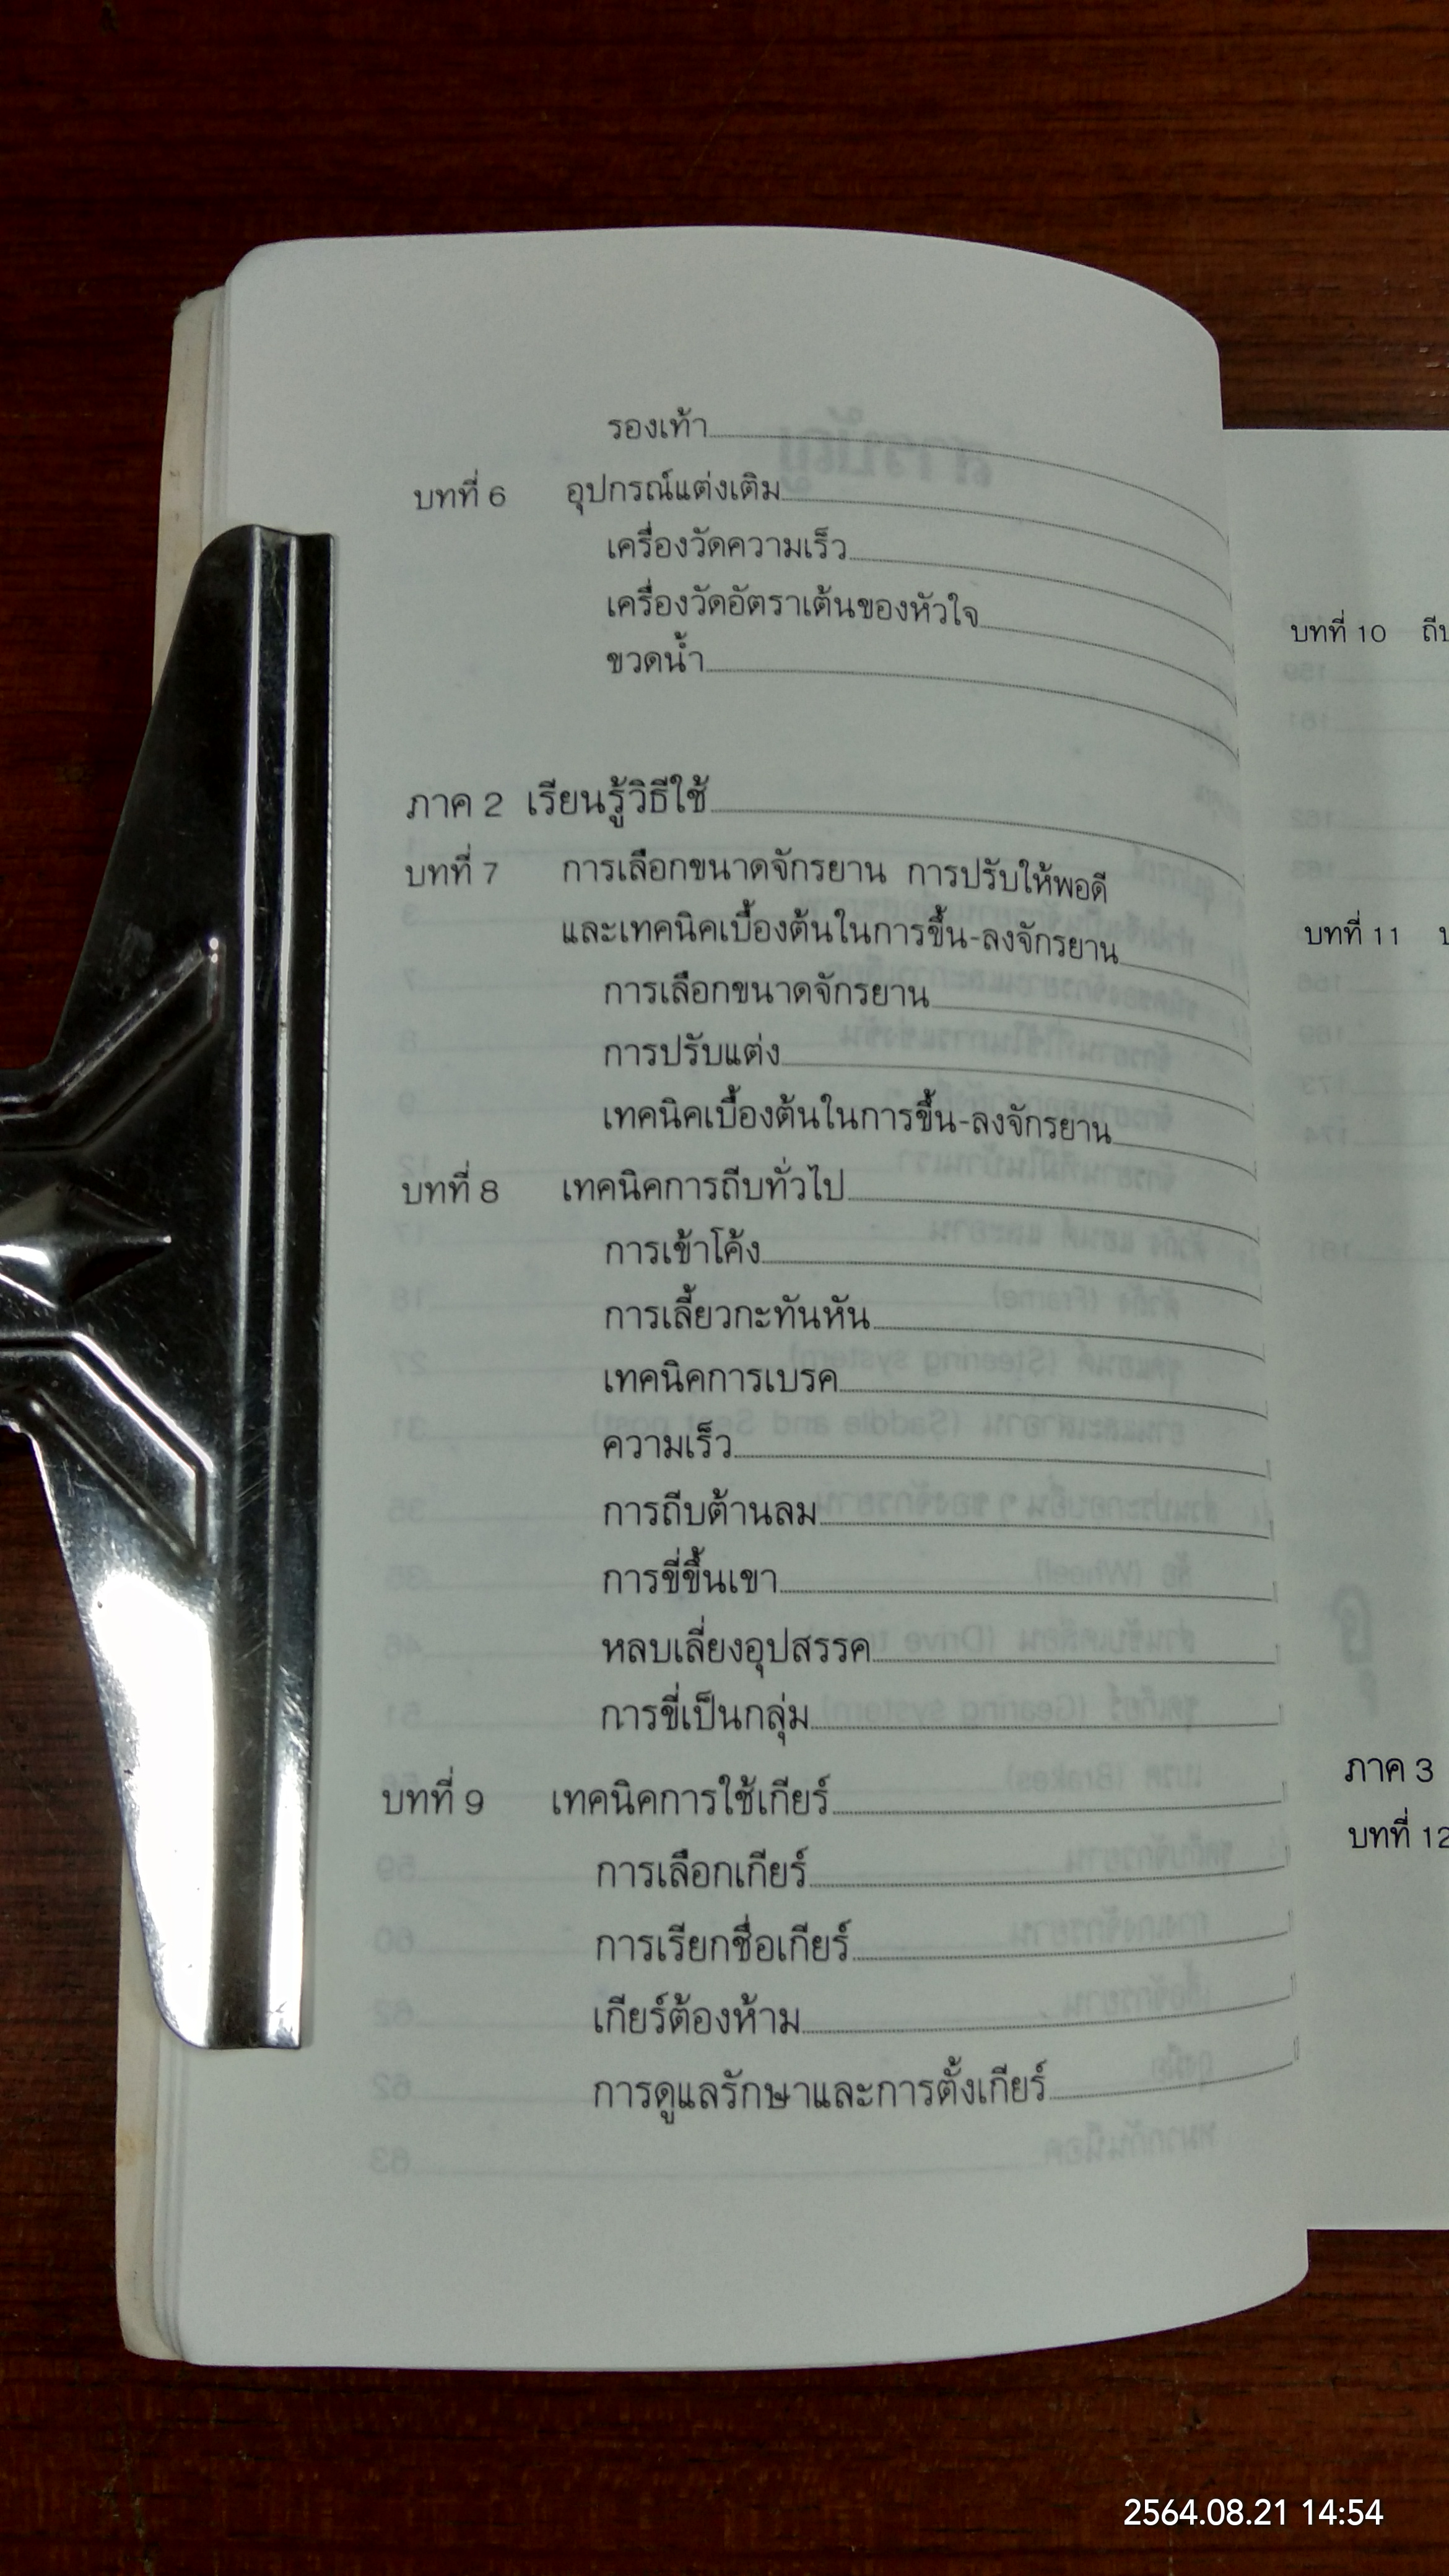 รองเท้า
บทที่ 6 อุปกรณ์แต่งเติม
เครื่องวัดความเร็ว
เครื่องวัดอัตราเต้นของหัวใจ
ขวดน้ำ
ภาค 2 เรียนรู้วิธีใช้
บทที่ 7 การเลือกขนาดจักรยาน การปรับให้พอดี
และเทคนิคเบื้องต้นในการขึ้น-ลงจักรยาน
การเลือกขนาดจักรยาน
การปรับแต่ง
เทคนิคเบื้องต้นในการขึ้น-ลงจักรยาน
บทที่ 8 เทคนิคการถีบทั่วไป
การเข้าโค้ง
การเลี้ยวกะทันหัน
เทคนิคการเบรค
ความเร็ว
การถีบต้านลม
การขี่ขึ้นเขา
หลบเลี่ยงอุปสรรค
การขี่เป็นกลุ่ม
บทที่ 9 เทคนิคการใช้เกียร์
การเลือกเกียร์
การเรียกชื่อเกียร์
เกียร์ต้องห้าม
การดูแลรักษาและการตั้งเกียร์
บทที่ 10
บทที่ 11
ภาค 3
บทที่ 12
2564.08.21 14:54